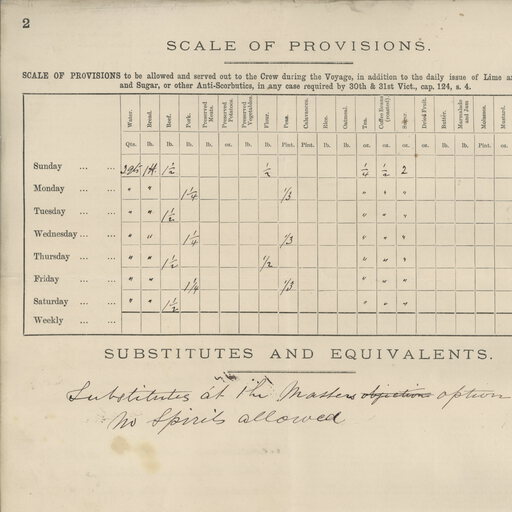 2
SCALE OF PROVISIONS.
SCALE OF PROVISIONS to be allowed and served out to the Crew during the Voyage, in addition to the daily issue of Lime
and Sugar, or other Anti-Scorbutics, in any case required by 30th & 31st Vict., cap. 124, s. 4.
Water. Bread. Beef. Pork. Preserved Meats. Preserved Potatoes. Preserved Vegetables. Flour. Peas. Calavances. Rice. Oatmeal. Tea. Coffee Beans (roasted). Sugar Dried Fruit. Butter. Marmalade and Jam Molasses. Mustard.
Qts. lb. lb. lb. lb. oz. lb. lb. Pint. Pint. lb. lb. oz. oz. oz. oz. oz. lb. oz.
Sunday ... ... 3qts 1 lb 1½ ½ ¼ ½ 2
Monday ... ... " " 1¼ 1/3 " " "
Tuesday ... ... " " 1½ " " "
Wednesday ... ... " " 1¼ 1/3 " " "
Thursday ... ... " " 1½ 1/2 " " "
Friday ... ... " " 1¼ 1/3 " " "
Saturday ... ... " " 1½ " " "
Weekly ... ...
SUBSTITUTES AND EQUIVALENTS.
Substitutes at the Masters objections option
No Spirits allowed